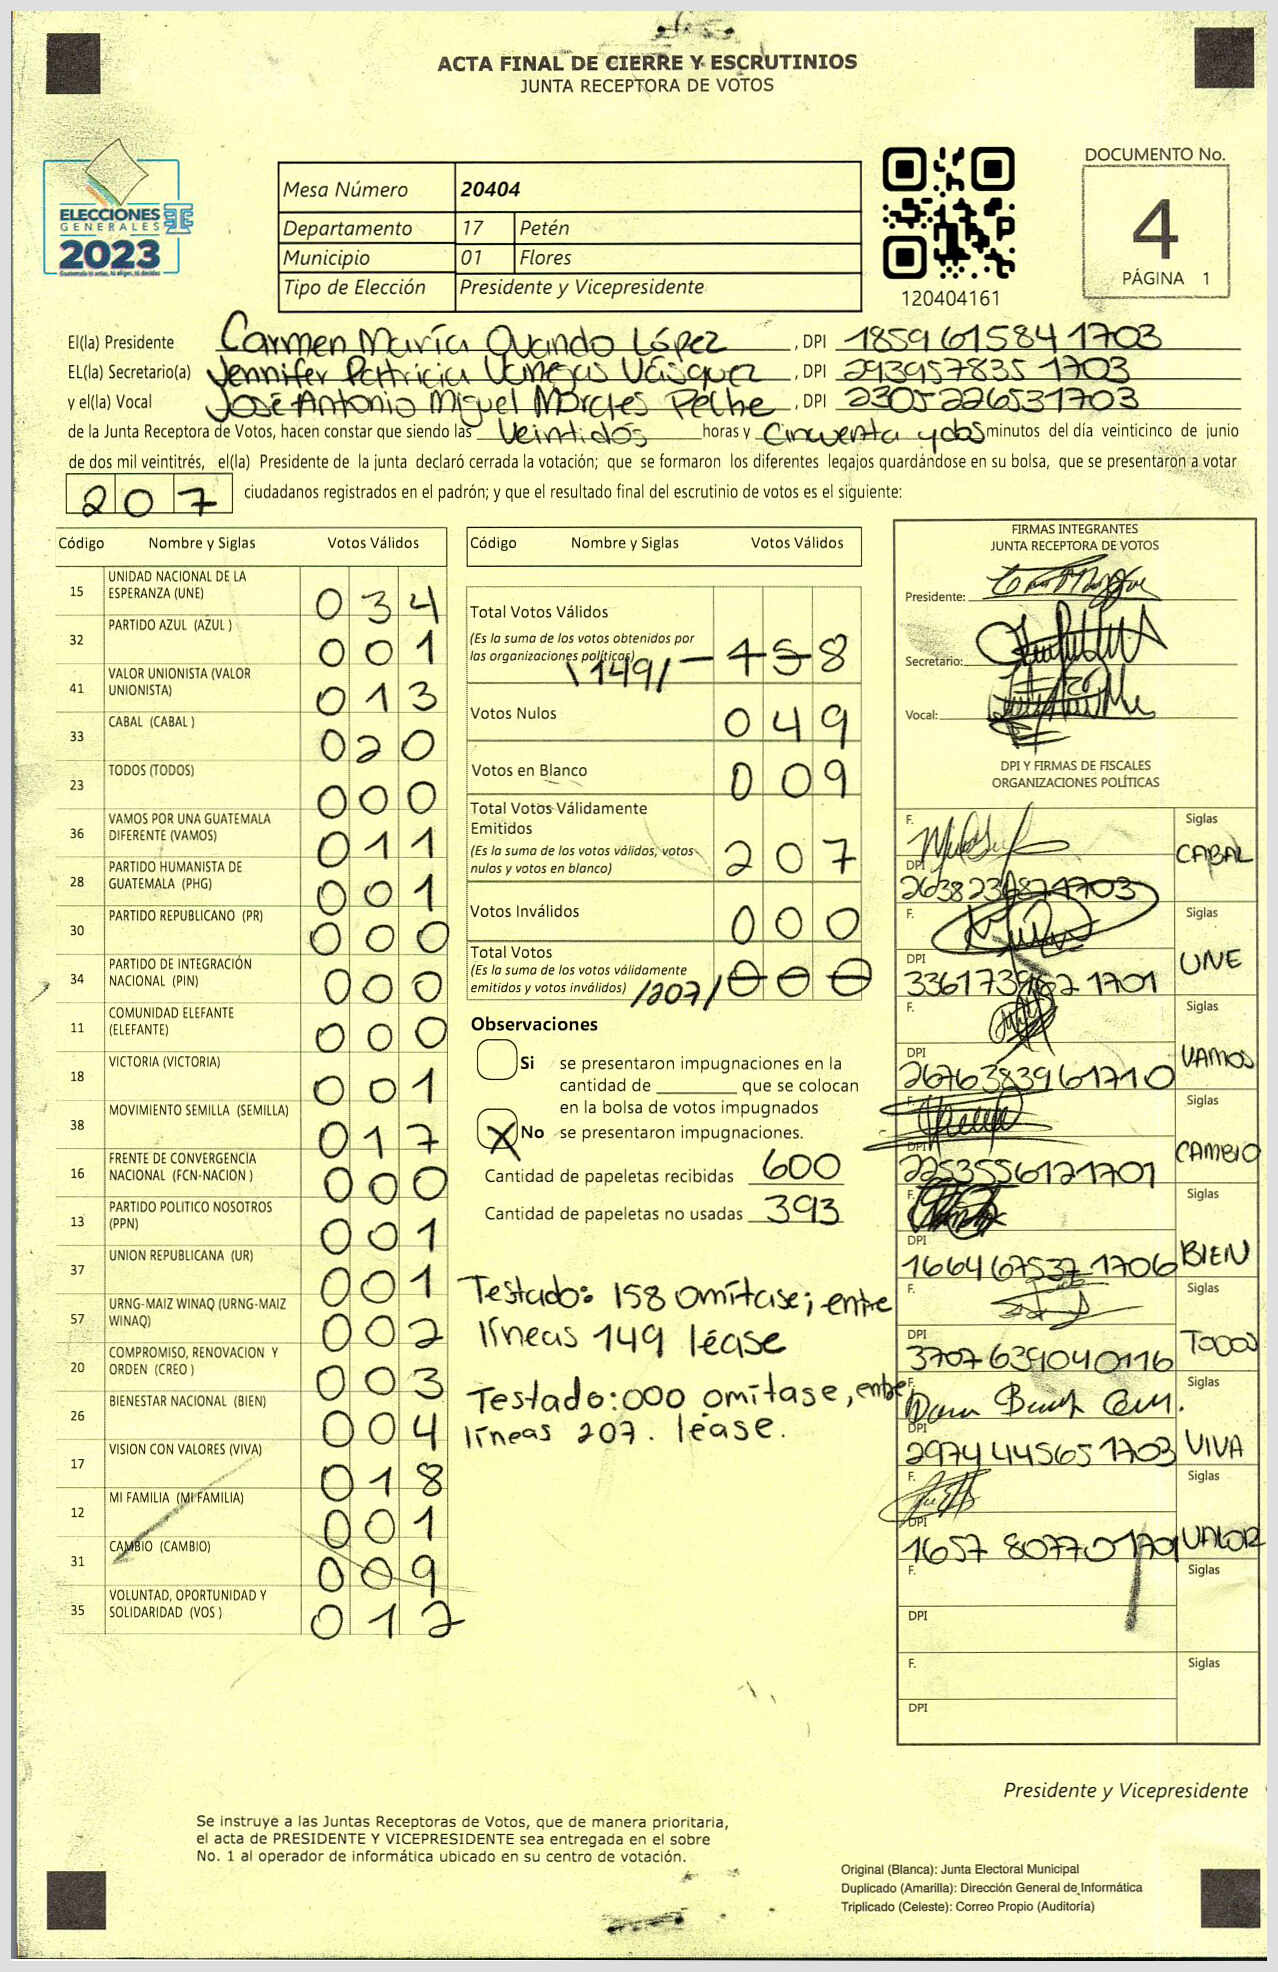 ACTA FINAL DE CIERRE Y ESCRUTINIOS
JUNTA RECEPTORA DE VOTOS
ELECCIONES
GENERALES
2023
Mesa Número 20404
Departamento 17 Petén
Municipio 01 Flores
Tipo de Elección Presidente y Vicepresidente
120404161
DOCUMENTO No.
4
PÁGINA 1
El(la) Presidente Carmen María Ovando López, DPI 1859615841703
EL(la) Secretario(a) Jennifer Patricia Vanegas Vásquez, DPI 2939578351703
y el(la) Vocal José Antonio Miguel Morales, DPI 2305226531703
de la Junta Receptora de Votos, hacen constar que siendo las Veintidós horas y Cincuenta y dos minutos del día veinticinco de junio
de dos mil veintitrés, el(la) Presidente de la junta declaró cerrada la votación; que se formaron los diferentes legajos quardándose en su bolsa, que se presentaron a votar
207 ciudadanos registrados en el padrón; y que el resultado final del escrutinio de votos es el siguiente:
Código Nombre y Siglas Votos Válidos
15 UNIDAD NACIONAL DE LA ESPERANZA (UNE) 034
32 PARTIDO AZUL (AZUL ) 001
41 VALOR UNIONISTA (VALOR UNIONISTA) 013
33 CABAL (CABAL ) 020
23 TODOS (TODOS) 000
36 VAMOS POR UNA GUATEMALA DIFERENTE (VAMOS) 011
28 PARTIDO HUMANISTA DE GUATEMALA (PHG) 001
30 PARTIDO REPUBLICANO (PR) 000
34 PARTIDO DE INTEGRACIÓN NACIONAL (PIN) 000
11 COMUNIDAD ELEFANTE (ELEFANTE) 000
18 VICTORIA (VICTORIA) 001
38 MOVIMIENTO SEMILLA (SEMILLA) 017
16 FRENTE DE CONVERGENCIA NACIONAL (FCN-NACION ) 000
13 PARTIDO POLITICO NOSOTROS (PPN) 001
37 UNION REPUBLICANA (UR) 001
57 URNG-MAIZ WINAQ (URNG-MAIZ WINAQ) 002
20 COMPROMISO, RENOVACION Y ORDEN (CREO ) 003
26 BIENESTAR NACIONAL (BIEN) 004
17 VISION CON VALORES (VIVA) 018
12 MI FAMILIA (MI FAMILIA) 001
31 CAMBIO (CAMBIO) 009
35 VOLUNTAD, OPORTUNIDAD Y SOLIDARIDAD (VOS ) 012
Código Nombre y Siglas Votos Válidos
Total Votos Válidos
(Es la suma de los votos obtenidos por
las organizaciones políticas) \149/ 158
Votos Nulos 049
Votos en Blanco 009
Total Votos Válidamente
Emitidos
(Es la suma de los votos válidos, votos
nulos y votos en blanco) 207
Votos Inválidos 000
Total Votos
(Es la suma de los votos válidamente
emitidos y votos inválidos) /207/ 000
Observaciones
Si se presentaron impugnaciones en la
cantidad de ________ que se colocan
en la bolsa de votos impugnados
X No se presentaron impugnaciones.
Cantidad de papeletas recibidas 600
Cantidad de papeletas no usadas 393
Testado: 158 omítase; entre
líneas 149 léase
Testado: 000 omítase, entre
líneas 207. léase.
FIRMAS INTEGRANTES
JUNTA RECEPTORA DE VOTOS
Presidente:
Secretario:
Vocal:
DPI Y FIRMAS DE FISCALES
ORGANIZACIONES POLÍTICAS
F. Siglas
DPI CABAL
F. Siglas
DPI UNE
F. Siglas
DPI 2676383961710 VAMOS
F. Siglas
DPI 2253556121701 CAMBIO
F. Siglas
DPI 1664675371706 BIEN
F. Siglas
DPI 3707639040116 TODOS
F. Siglas
DPI 2974445651703 VIVA
F. Siglas
DPI 1657807701701 VALOR
F. Siglas
DPI
F. Siglas
DPI
Presidente y Vicepresidente
Se instruye a las Juntas Receptoras de Votos, que de manera prioritaria,
el acta de PRESIDENTE Y VICEPRESIDENTE sea entregada en el sobre
No. 1 al operador de informática ubicado en su centro de votación.
Original (Blanca): Junta Electoral Municipal
Duplicado (Amarilla): Dirección General de Informática
Triplicado (Celeste): Correo Propio (Auditoría)